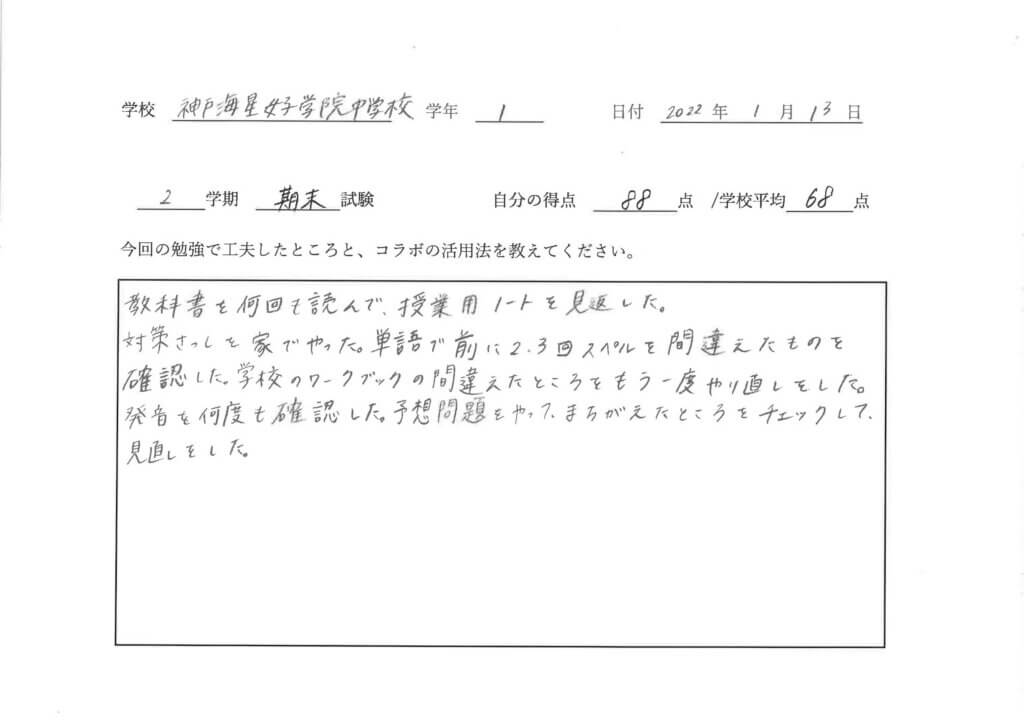 学校 神戸海星女子学院中学校 学年 1 日付 2022 年 1 月 13 日
2 学期 期末 試験 自分の得点 88 点 /学校平均 68 点
今回の勉強で工夫したところと、コラボの活用法を教えてください。
教科書を何回も読んで、授業用ノートを見返した。
対策さっしを家でやった。単語で前に2.3回スペルを間違えたものを
確認した。学校のワークブックの間違えたところをもう一度やり直しをした。
発音を何度も確認した。予想問題をやって、まちがえたところをチェックして、
見直しをした。